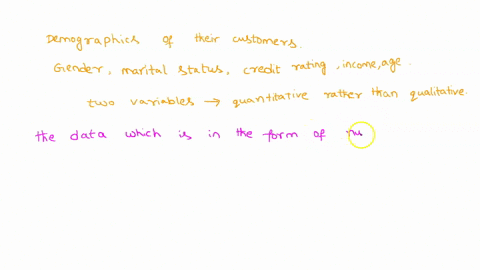 Demographics of their customers.
Gender, marital status, credit rating, income, age.
two variables → quantitative rather than qualitative.
the data which is in the form of